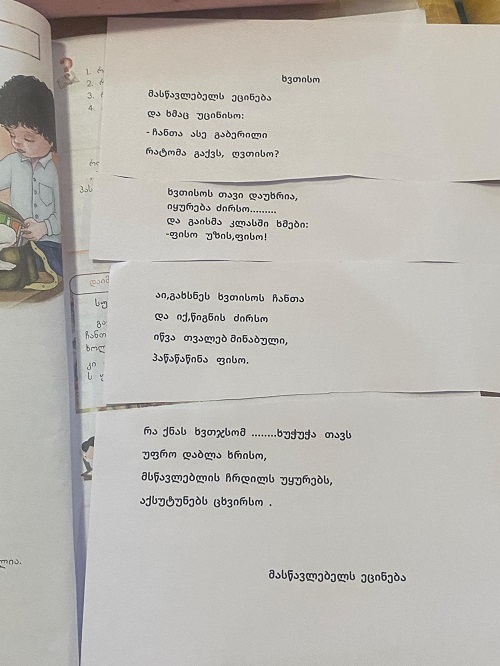 ხვთისო
მასწავლებელს ეცინება
და ხმაც უცინისო:
-ჩანთა ასე გაბერილი
რატომა გაქვს, ღვთისო?
ხვთისოს თავი დაუხრია,
იყურება ძირსო.........
და გაისმა კლასში ხმები:
-ფისო უზის,ფისო!
აი,გახსნეს ხვთისოს ჩანთა
და იქ,წიგნის ძირსო
იწვა თვალებ მინაბული,
პაწაწაწინა ფისო.
რა ქნას ხვთჯსომ ........ხუჭუჭა თავს
უფრო დაბლა ხრისო,
მსწავლებლის ჩრდილს უყურებს,
აქსუტუნებს ცხვირსო .
მასწავლებელს ეცინება
1.
2.
3.
4.